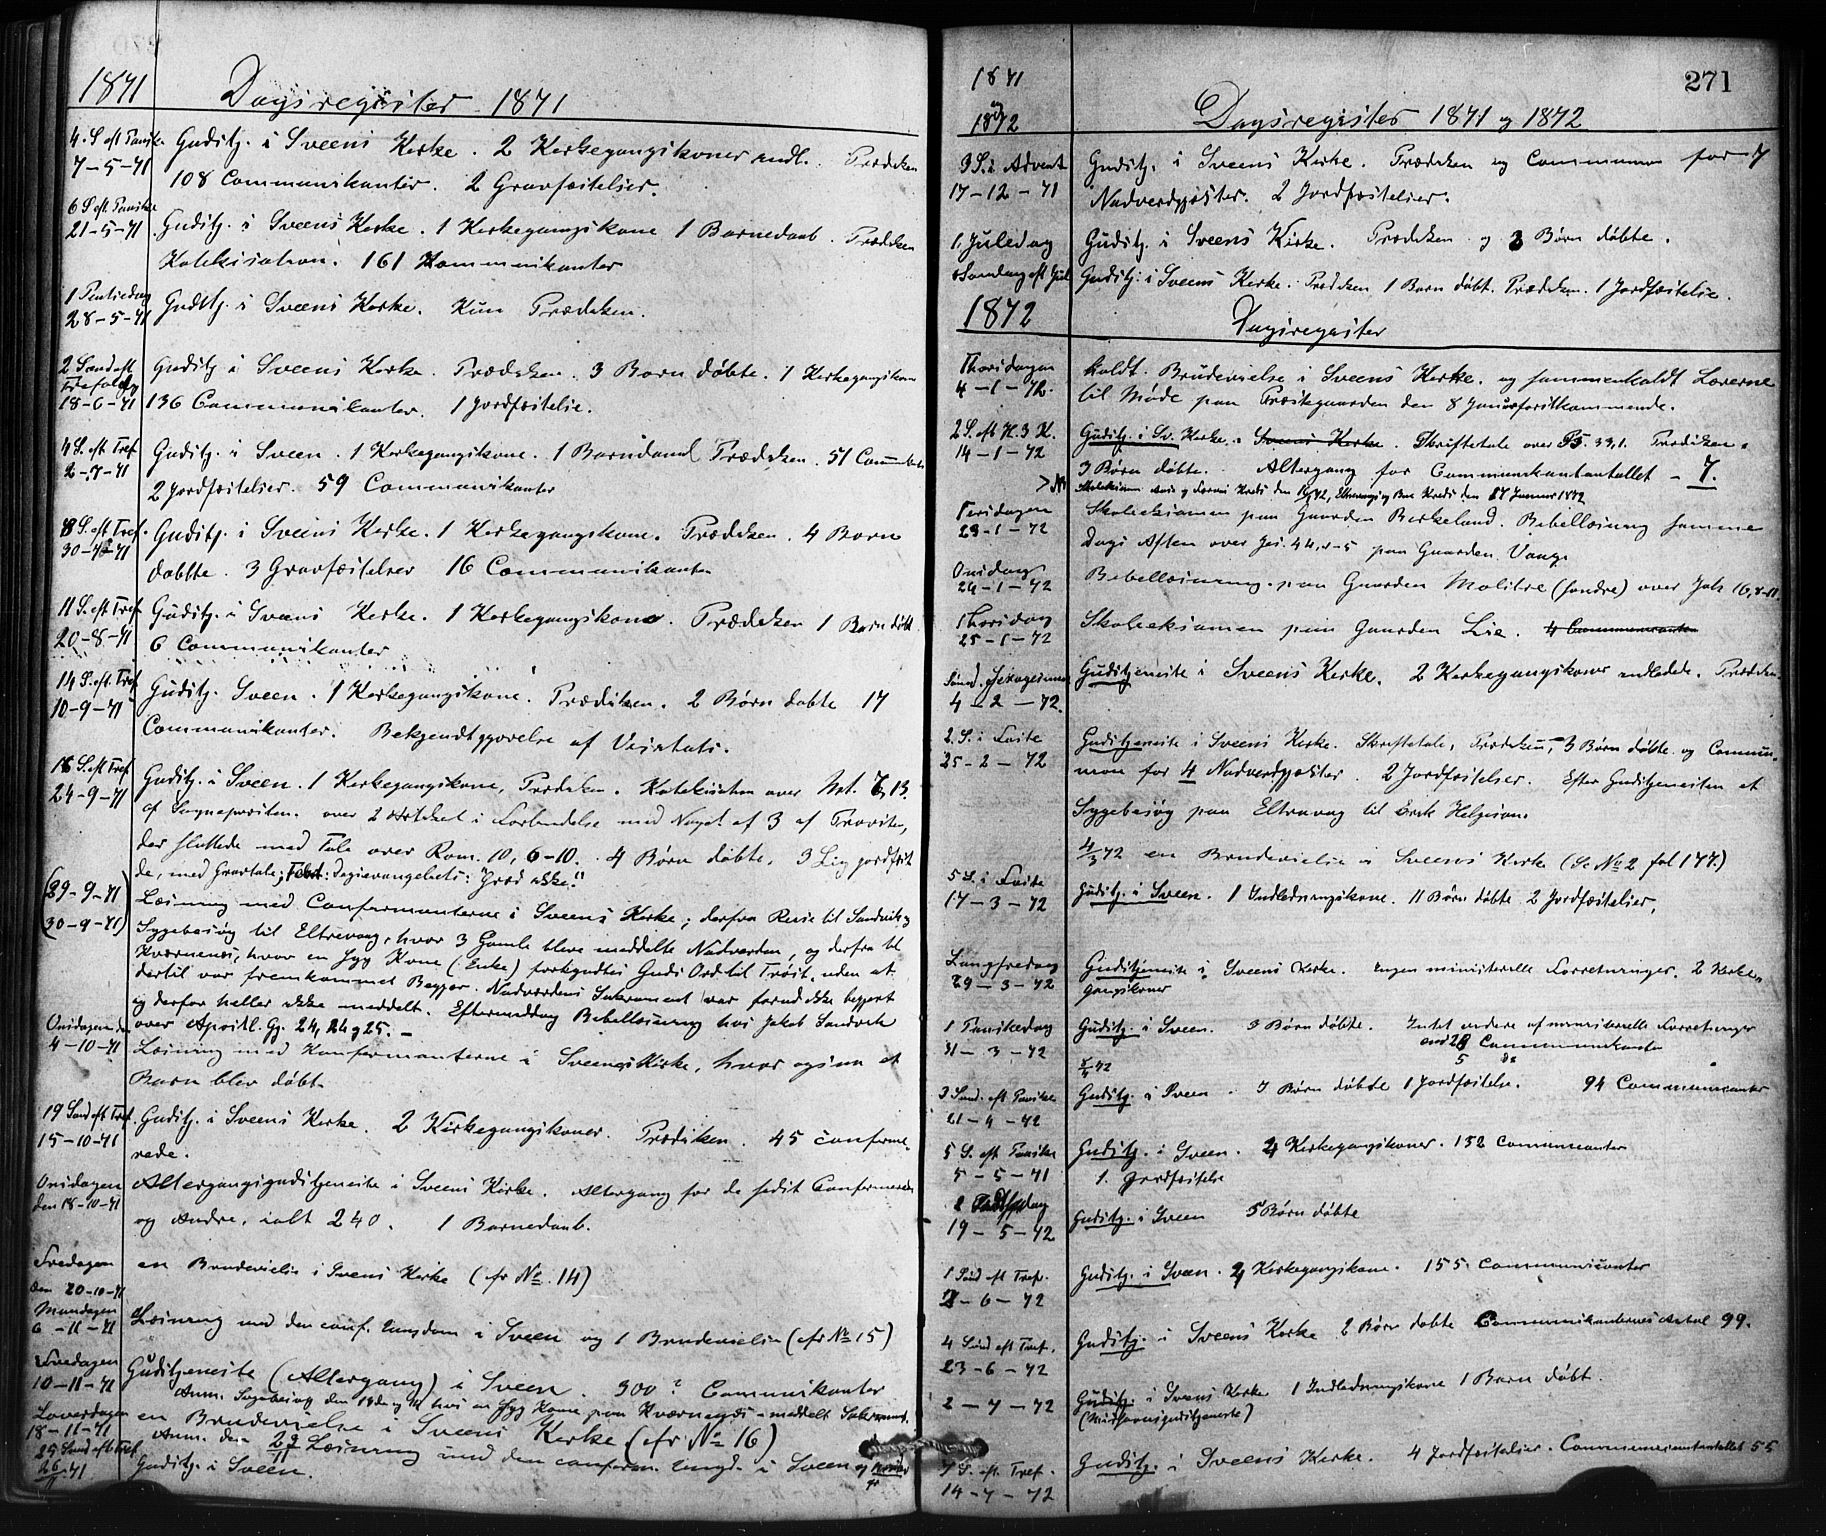 1871 Dagsregister 1871
4. S. eft Paaske Gudstj. i Sveens Kirke. 2 Kirkegangskoner indl. Prædiken
7-5-71 108 Communikanter. 2 Gravfæstelser.
6 S. eft. Paaske
21-5-71 Gudstj. i Sveens Kirke. 1 Kirkegangskone 1 Barnedaab. Prædiken
Katekisation. 161 Kommunikanter
1 Pintsedag
28-5-71 Gudstj. i Sveens Kirke. Kun Prædiken.
2 Sønd eft Trefoldig Gudstj i Sveens Kirke. Prædiken. 3 Børn døbte. 1 Kirkegangskone
18-6-71 136 Communikanter. 1 Jordfæstelse.
4 S. eft Tref Gudstj. i Sveen. 1 Kirkegangskone. 1 Barnedaab Prædiken.
2-7-71 2 Jordfæstelser. 59 Communikanter
8 S. eft Tref. Gudstj. i Sveens Kirke. 1 Kirkegangskone. Prædiken. 4 Børn
30-7-71 døbte. 3 Gravfæstelser 16 Communikanter
11 S. eft Tref. Gudstj. i Sveens Kirke. 1 Kirkegangskone. Prædiken 1 Barn døbt.
20-8-71 6 Communikanter
14 S. eft. Tref Gudstj. Sveen. 1 Kirkegangskone. Prædiken. 2 Børn døbte 17
10-9-71 Communikanter. Bekjendtgjørelse af Visitats.
16 S. eft Tref. Gudstj. i Sveen. 1 Kirkegangskone, Prædiken. Katekisation over Mt. 7, 13.
24-9-71 af Sogneprästen. over 2 Artikel i Forbindelse med Noget af 3 af Provsten,
der sluttede med Tale over Rom. 10, 6-10. 4 Børn døbte. 3 Lig jordfæst
de, med Gravtale; Text: Dagsevangeliets: "Græd ikke!"
(29-9-71 Læsning med Confirmanterne i Sveens Kirke; derfra Reise til Sandvik og
30-9-71) Sygebesøg til Eltrevaag, hvor 3 Gamle bleve meddelte Nadverden, og derfra til
Kværnenes, hvor en syg Kone (Enke) forkyndtes Guds Ord til Trøst, uden at
dertil var fremkommet Begjær. Nadverdens Sakrament var forud ikke begjært
og derfor heller ikke meddelt. Eftermiddag Bibellæsning hos Jakob Sandvik
over Apostl. Gj. 24, 24 og 25. -
Onsdagen
4-10-71 Læsning med Konfirmanterne i Sveens Kirke, hvor ogsaa et
Barn blev døbt.
19 Sønd eft Tref. Gudstj. i Sveens Kirke. 2 Kirkegangskoner. Prædiken. 45 confirme-
15-10-71 rede.
Onsdagen Altergangsgudstjeneste i Sveens Kirke. Altergang for de sidst Confirmerede
den 18-10-71 og Andre, ialt 240. 1 Barnedaab.
Fredagen
den 20-10-71 en Brudevielse i Sveens Kirke (cfr No. 14)
Mandagen
6-11-71 Læsning med den conf. Ungdom i Sveen og 1 Brudevielse (cfr No 15)
Fredagen Gudstjeneste (Altergang) i Sveen. 300? Communikanter
10-11-71 Anm. Sygebesøg den hos en syg Kone paa Kværnenes - meddelt Sakrament.
Løverdagen
18-11-71 en Brudevielse i Sveens Kirke (cfr No 16)
Anm. den Læsning med den confirm. Ungd. i Sveen
25 Sønd eft Tref.
26/11 71 Gudstj. i Sveen.
271
1871
og
1872 Dagsregister 1871 og 1872
3 S. i Advent Gudstj. i Sveens Kirke. Prædiken og Communion for 7
17-12-71 Nadverdgjæster. 2 Jordfæstelser.
1. Juledag Gudstj. i Sveens Kirke. Prædiken og 3 Børn døbte.
Søndag eft Jul Gudstj. i Sveens Kirke. Prædiken 1 Barn døbt. Prædiken. 1 Jordfæstelse.
1872 Dagsregister
Thorsdagen holdt Brudevielse i Sveens Kirke. og sammenkaldt Lærerne
4-1-72. til Møde paa Præstegaarden den 8 Januar førstkommende.
2 S. eft H. 3 K. Gudstj. i Sv. Kirke. Sveens Kirke. Skriftetale over Ps. 33,1. Prædiken.
14-1-72 3 Børn døbte. Altergang for Communikantantallet - 7.
Tirsdagen Skoleeksamen paa Gaarden Birkeland. Bibellæsning samme
23-1-72 Dags Aften over Jes. 44, 1-5 paa Gaarden Vaage
Onsdag
24-1-72 Bibellæsning paa Gaarden (søndre) over Joh 16, 8-11.
Thorsdag
25-1-72 Skoleeksamen paa Gaarden Lie. 4 Communicanter
Sønd. Seksagesima Gudstjeneste i Sveens Kirke. 2 Kirkegangskoner indledede. Prædiken.
4-2-72.
2. S. i Faste Gudstjeneste i Sveens Kirke. Skriftetale, Prædiken, 3 Børn døbte og Commu-
25-2-72 nion for 4 Nadverdgjæster. 2 Jordfæstelser. Efter Gudstjenesten et
Sygebesøg paa Eltravaag til Erik Helgesen.
4/3 72 en Brudevielse i Sveens Kirke (Se No 2 fol 177.)
5 S. i Faste
17-3-72 Gudstj. i Sveen. 1 Indledningskone. 11 Børn døbte 2 Jordfæstelser.
Langfredag Gudstjeneste i Sveens Kirke. Ingen ministerielle Forretninger. 2 Kirke
29-3-72 gangskoner
1 Paaskedag Gudstj. i Sveen. 3 Børn døbte. Intet andere af ministerielle Forretninger
31-3-72 end 28 Communikanter
3 Sønd. eft Paaske Gudstj. i Sveen. 7 Børn døbte 1 Jordfæstelse. 94 Communicanter
21-4-72
5 S. eft Paaske Gudstj. i Sveen. 4 Kirkegangskoner. 132 Communicanter
5-5-71 1. Jordfæstelse
2
19-5-72 Gudstj. i Sveen 5 Børn døbte
1 Sønd eft Tref. Gudstj. i Sveen. 4 Kirkegangskone. 155 Communicanter
2-6-72
4 Sønd eft Tref. Gudstj. i Sveens Kirke 2 Børn døbte Communikanternes Antal 99.
23-6-72
2-7-72 Gudstj. i Sveens Kirke 1 Indledningskone 1 Barn døbt.
(Misfarmsgudstjeneste)
7 S. eft. Tref. Gudstj. i Sveens Kirke. 4 Jordfæstelser. Communicantantallet 55
14-7-72